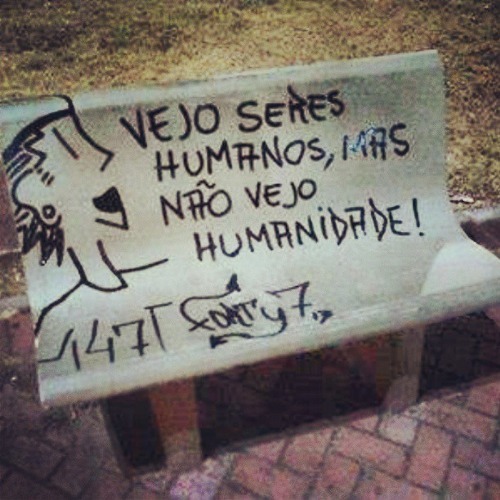 VEJO SERES
HUMANOS, MAS
NÃO VEJO
HUMANIDADE!
147